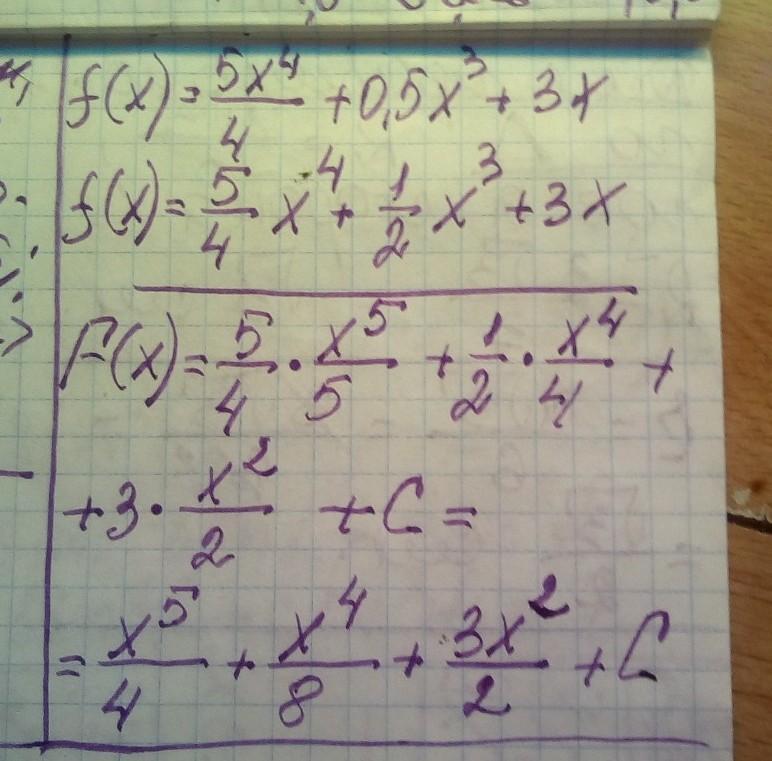 f(x) = 5x⁴/4 + 0,5x³ + 3x
f(x) = 5/4 x⁴ + 1/2 x³ + 3x
F(x) = 5/4 · x⁵/5 + 1/2 · x⁴/4 +
+ 3 · x²/2 + C =
= x⁵/4 + x⁴/8 + 3x²/2 + C